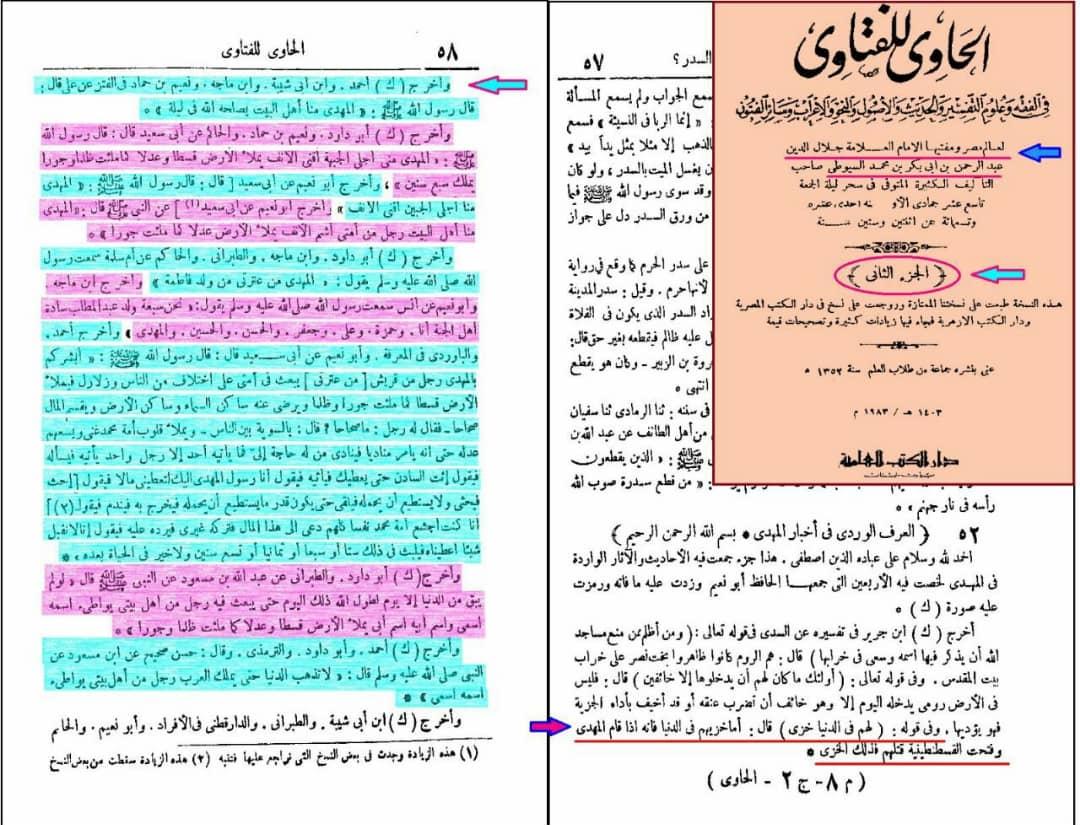 الحاوى للفتاوى
فى الفقه وعلوم التفسير والحديث والأصول والنحو والإعراب وسائر الفنون
لعالم مصر ومفتيها الامام العلامة جلال الدين
عبد الرحمن بن ابى بكر بن محمد السيوطى صاحب
التآ ليف الكثيرة المتوفى فى سحر ليلة الجمعة
تاسع عشر جمادى الأو نه احدى عشره
وتسعمائة عن اثنتين وستين سنة
﴿ الجزء الثانى ﴾
هذه النسخة طبعت على نسختنا الممتازة وروجعت على نسخ فى دار الكتب المصرية
ودار الكتب الازهرية فجاء فيها زيادات كثيرة وتصحيحات قيمة
عنى بنشره جماعة من طلاب العلم سنة ١٣٥٢ ه
١٤٠٣ هـ / ١٩٨٣ م
دار الكتب العلمية
السدر ؟ ٥٧
سمع الجواب ولم يسمع المسألة
: « إنما الربا فى النسيئة » فسمع
بالذهب إلا مثلا بمثل يدأ بيد »
ن يغسل الميت بالسدر ، ولو كان
وقد سوى رسول الله ﷺ فيما
من ورق السدر دل على جواز
على سدر الحرم كما وقع فى رواية
لأنها حرم . وقيل : سدر المدينة
اد السدر الذى يكون فى الفلاة
عليه ظالم فيقطعه بغير حق قال :
روة بن الزبير ـ وكان هو يقطع
انتهى *
فى سننه : ثنا الرمادى ثنا سفيان
من أهل الطائف عن عبد الله بن
ﷺ : « الذين يقطعون
: « من قطع سدرة صوب الله
رأسه فى نار جهنم » *
٥٢ ﴿ العرف الوردى فى أخبار المهدى * بسم الله الرحمن الرحيم ﴾
الحمد لله وسلام على عباده الذين اصطفى . هذا جزء جمعت فيه الأحاديث والآثار الواردة
فى المهدى لخصت فيه الأربعين التى جمعها الحافظ أبو نعيم وزدت عليه ما فاته ورمزت
عليه صورة ( ك ) *
أخرج ( ك ) ابن جرير فى تفسيره عن السدى فى قوله تعالى : ( ومن أظلم ممن منع مساجد
الله أن يذكر فيها اسمه وسعى فى خرابها ) قال : هم الروم كانوا ظاهروا بخت نصر على خراب
بيت المقدس . وفى قوله تعالى : ( أولئك ما كان لهم أن يدخلوها إلا خائفين ) قال : فليس
فى الأرض رومى يدخله اليوم إلا وهو خائف أن تضرب عنقه أو قد أخيف بأداء الجزية
فهو يؤديها . وفى قوله : ( لهم فى الدنيا خزى ) قال : أما خزيهم فى الدنيا فانه اذا قام المهدى
وفتحت القسطنطينية قتلهم فذلك الخزى *
( م ٨ - ج ٢ - الحاوى )
٥٨ الحاوى للفتاوى
وأخرج ( ك ) احمد . وابن أبى شيبة . وابن ماجه . ونعيم بن حماد فى الفتن عن على قال :
قال رسول الله ﷺ : « المهدى منا أهل البيت يصلحه الله فى ليلة » *
وأخرج ( ك ) أبو داود . ونعيم بن حماد . والحاكم عن أبى سعيد قال : قال رسول الله
ﷺ : « المهدى منى اجلى الجبهة أقنى الانف يملأ الأرض قسطا وعدلا كما ملئت ظلما وجورا
يملك سبع سنين » ، وأخرج أبو نعيم عن ابى سعيد [ قال : قال رسول الله ﷺ : « المهدى
منا اجلى الجبين اقنى الانف » وأخرج ابو نعيم عن ابى سعيد (١) ] عن النبى ﷺ قال : « المهدى
منا أهل البيت رجل من أمتى أشم الانف يملأ الأرض عدلا كما ملئت جورا » *
وأخرج ( ك ) أبو داود . وابن ماجه . والطبرانى . والحاكم عن أم سلمة سمعت رسول
الله صلى الله عليه وسلم يقول : « المهدى من عترتى من ولد فاطمة » وأخرج ابن ماجه .
وأبو نعيم عن أنس سمعت رسول الله صلى الله عليه وسلم يقول : « نحن سبعة ولد عبد المطلب سادة
أهل الجنة أنا . وحمزة . وعلى . وجعفر . والحسن . والحسين . والمهدى » وأخرج أحمد .
والباوردى فى المعرفة . وأبو نعيم عن أبى سعيد قال : قال رسول الله ﷺ : « أبشركم
بالمهدى رجل من قريش [ من عترتى ] يبعث فى أمتى على اختلاف من الناس وزلازل فيملأ
الأرض قسطا كما ملئت جورا وظلما ويرضى عنه ساكن السماء وساكن الأرض ويقسم المال
صحاحا ـ فقال له رجل : ما صحاحا ؟ قال : بالسوية بين الناس ـ ويملأ قلوب أمة محمد غنى ويسعهم
عدله حتى انه يأمر مناديا فينادى من له حاجة إلى فما يأتيه أحد إلا رجل واحد يأتيه فيسأله
فيقول إئت السادن حتى يعطيك فيأتيه فيقول أنا رسول المهدى اليك لتعطينى مالا فيقول [ إحث
فيحثى ولا يستطيع أن يحمله فيلقى حتى يكون قدر ما يستطيع أن يحمله فيخرج به فيندم فيقول (٢) ]
أنا كنت أجشع أمة محمد نفسا كلهم دعى الى هذا المال فتركه غيرى فيرده عليه فيقول إنا لا نقبل
شيئا اعطيناه فيلبث فى ذلك ستا أو سبعا أو ثمانيا أو تسع سنين ولا خير فى الحياة بعده » *
وأخرج ( ك ) أبو داود . والطبرانى عن عبد الله بن مسعود عن النبى ﷺ قال « لو لم
يبق من الدنيا إلا يوم لطول الله ذلك اليوم حتى يبعث فيه رجل من أهل بيتى يواطىء اسمه
اسمى واسم أبيه اسم أبى يملأ الأرض قسطا وعدلا كما ملئت ظلما وجورا » *
وأخرج ( ك ) أحمد . وأبو داود . والترمذى . وقال : حسن صحيح عن ابن مسعود عن
النبى صلى الله عليه وسلم قال : « لا تذهب الدنيا حتى يملك العرب رجل من أهل بيتى يواطىء
اسمه اسمى » *
وأخرج ( ك ) ابن أبى شيبة . والطبرانى . والدارقطنى فى الأفراد . وأبو نعيم . والحاكم
(١) هذه الزيادة وجدت فى بعض النسخ التى نراجع عليها فتنبه (٢) هذه الزيادة سقطت من بعض النسخ